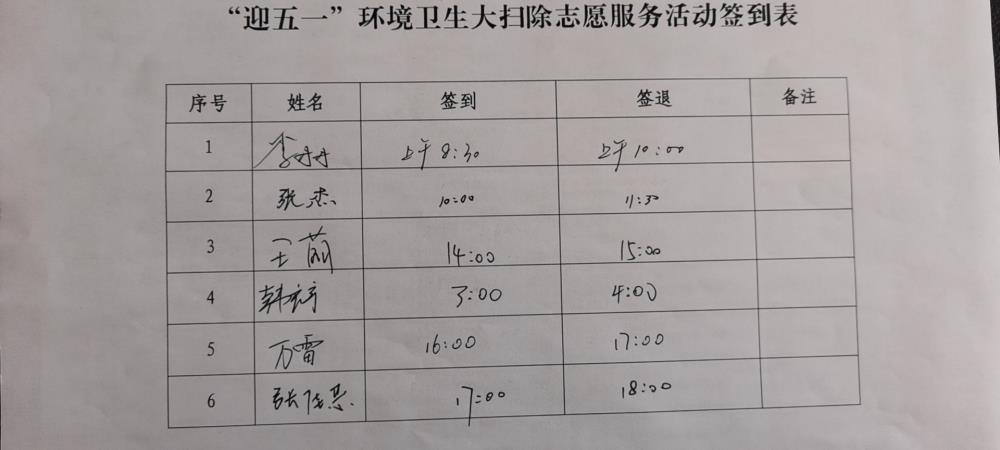 “迎五一”环境卫生大扫除志愿服务活动签到表
序号 姓名 签到 签退 备注
1 李丹丹 上午8:30 上午10:00
2 张杰 10:00 11:30
3 王丽 14:00 15:00
4 韩 3:00 4:00
5 万雷 16:00 17:00
6 张 17:00 18:00